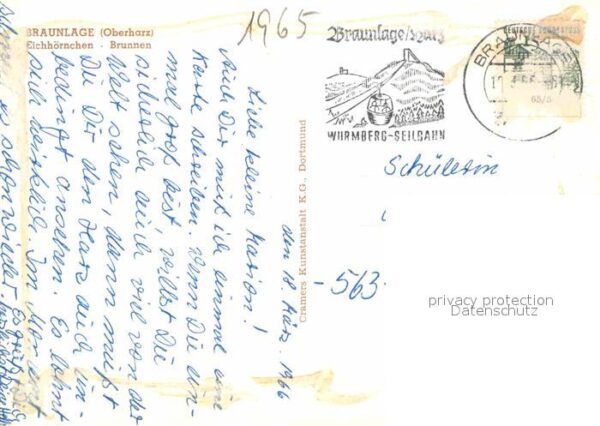 1965
BRAUNLAGE (Oberharz)
Eichhörnchen - Brunnen
Braunlage/Harz
WURMBERG-SEILBAHN
BRAUNLAGE
DEUTSCHE BUNDESPOST
65/5
Schülerin
-563-
privacy protection
Datenschutz
Cramers Kunstanstalt K.G., Dortmund
den 18. März. 1966
Liebe kleine Marion!
Auch Dir muß ich einmal eine
Karte schreiben. Wenn Du ein-
mal groß bist, willst Du
sicherlich auch viel von der
Welt sehen, dann mußt
Du Dir den Harz auch un-
bedingt ansehen. Es lohnt
sich wirklich. Im Moment
es schon wieder